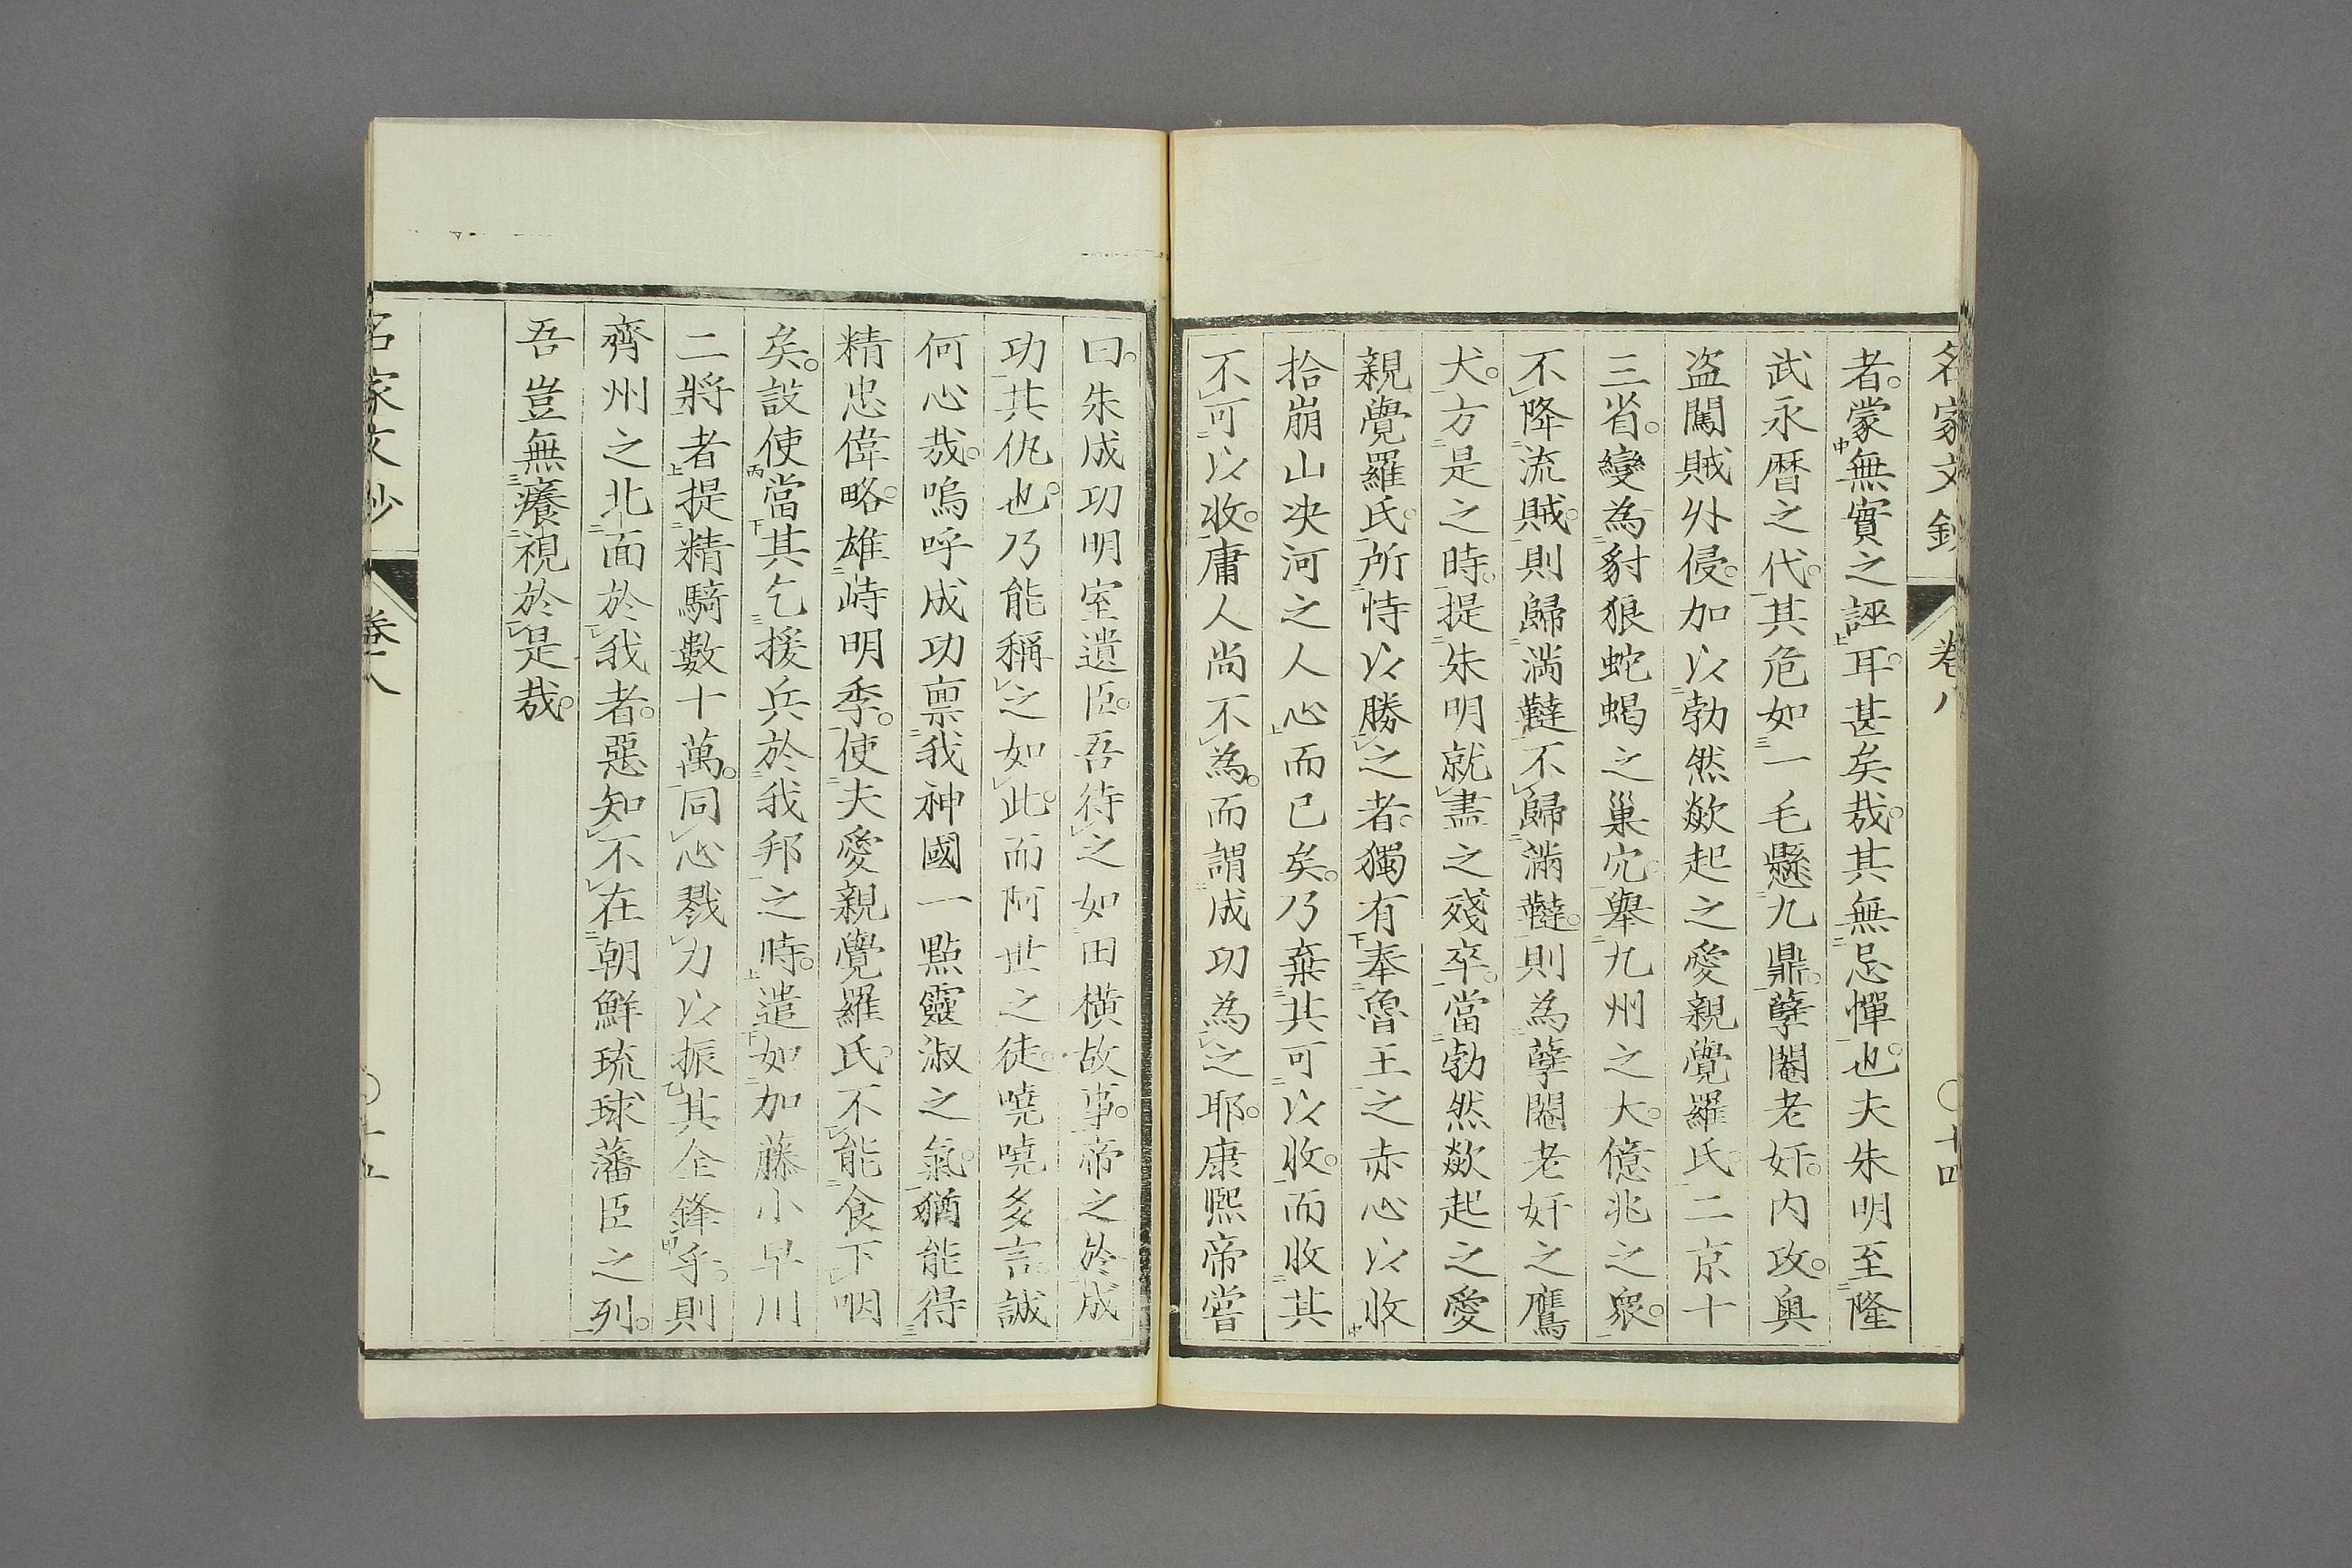 名家文鈔 卷八 〇十四
者。蒙無實之誣耳。甚矣哉。其無忌憚也。夫朱明至隆
武永曆之代。其危如一毛懸九鼎。孽閹老奸。內攻。輿
盗闖賊外侵。加以勃然歘起之愛親覺羅氏。二京十
三省。變為豺狼蛇蝎之巢穴。舉九州之大。億兆之衆。
不降流賊。則歸満韃。不歸滿韃。則為孽閹老奸之鷹
犬。方是之時。提朱明就盡之殘卒。當勃然歘起之愛
親覺羅氏。所恃以勝之者。獨有奉魯王之赤心以收
拾崩山决河之人心而已矣。乃棄其可以收。而收其
不可以收。庸人尚不為。而謂成功為之耶。康熙帝嘗
曰。朱成功明室遺臣。吾待之如田橫故事。帝之於成
功。其仇也。乃能稱之如此。而阿世之徒。嘵嘵多言。誠
何心哉。嗚呼成功禀我神國一點靈淑之氣。猶能得
精忠偉略。雄峙明季。使夫愛親覺羅氏。不能食下咽
矣。設使當其乞援兵於我邦之時。遣如加藤小早川
二將者提精騎數十萬。同心戮力以振其全鋒乎。則
齊州之北面於我者。惡知不在朝鮮琉球藩臣之列。
吾豈無癢視於是哉。
名家文鈔 卷八 〇十五